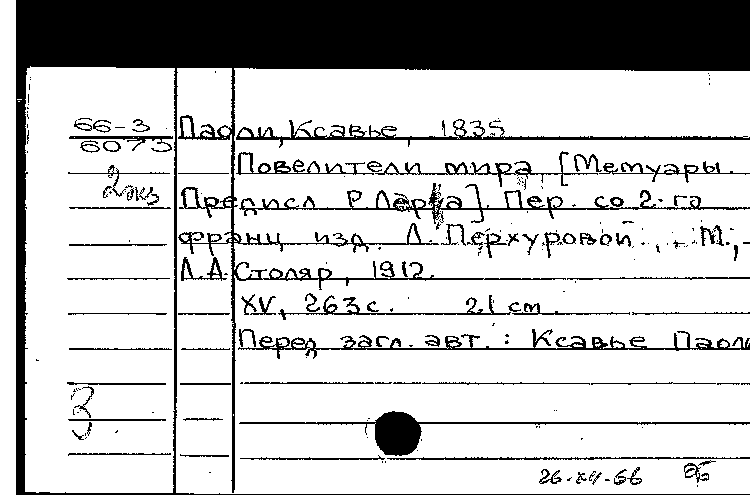 66-3
6073
2 экз
Паоли, Ксавье, 1835
Повелители мира. [Мемуары.
Предисл. Р. Ларда]. Пер. со 2-го
франц. изд. Л. Перхуровой. М.,
Л.А. Столяр, 1912.
XV, 263 с. 21 cm.
Перед загл. авт.: Ксавье Паоли
3
26-XII-66